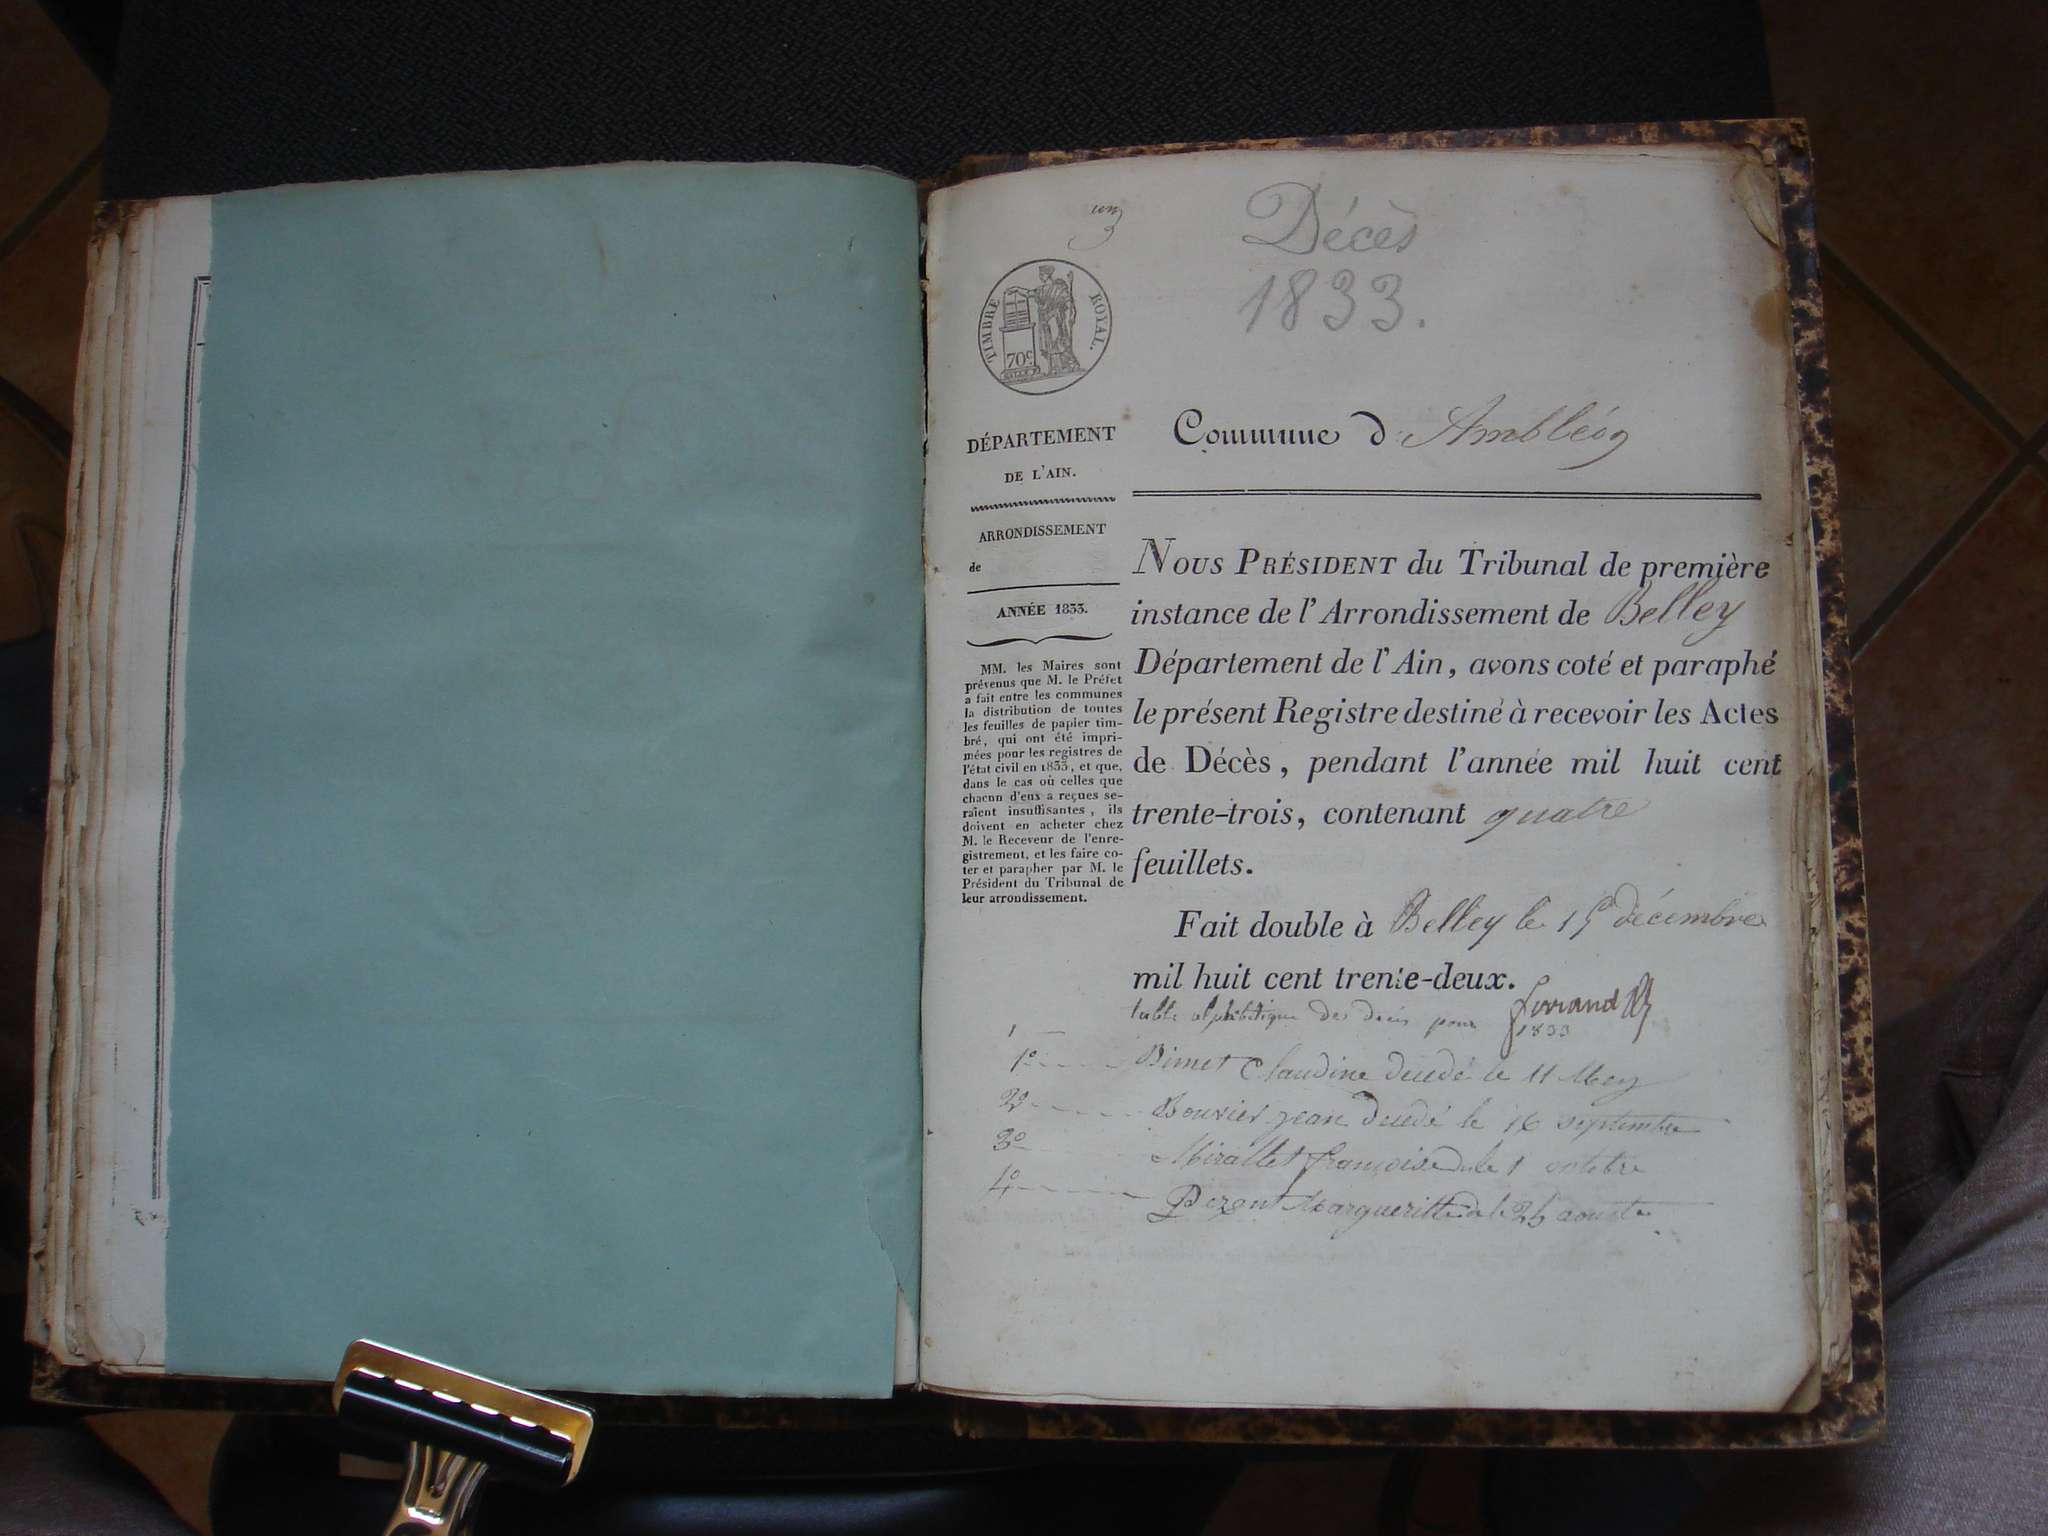 un
Décès
1833.
TIMBRE ROYAL.
70c
DÉPARTEMENT
DE L'AIN.
ARRONDISSEMENT
de
ANNÉE 1833.
MM. les Maires sont
prévenus que M. le Préfet
a fait entre les communes
la distribution de toutes
les feuilles de papier tim-
bré, qui ont été impri-
mées pour les registres de
l'état civil en 1833, et que,
dans le cas où celles que
chacun d'eux a reçues se-
raient insuffisantes, ils
doivent en acheter chez
M. le Receveur de l'enre-
gistrement, et les faire co-
ter et parapher par M. le
Président du Tribunal de
leur arrondissement.
Commune d'Ambléon
NOUS PRÉSIDENT du Tribunal de première
instance de l'Arrondissement de Belley
Département de l'Ain, avons coté et paraphé
le présent Registre destiné à recevoir les Actes
de Décès, pendant l'année mil huit cent
trente-trois, contenant quatre
feuillets.
Fait double à Belley le 15 décembre
mil huit cent trente-deux.
table alphabétique des décès pour 1833
1° Bimet Claudine décédé le 11 May
2° Bouvier jean décédé le 16 septembre
3° Mirallet françoise le 1 octobre
4° Margueritte le 25 aouste